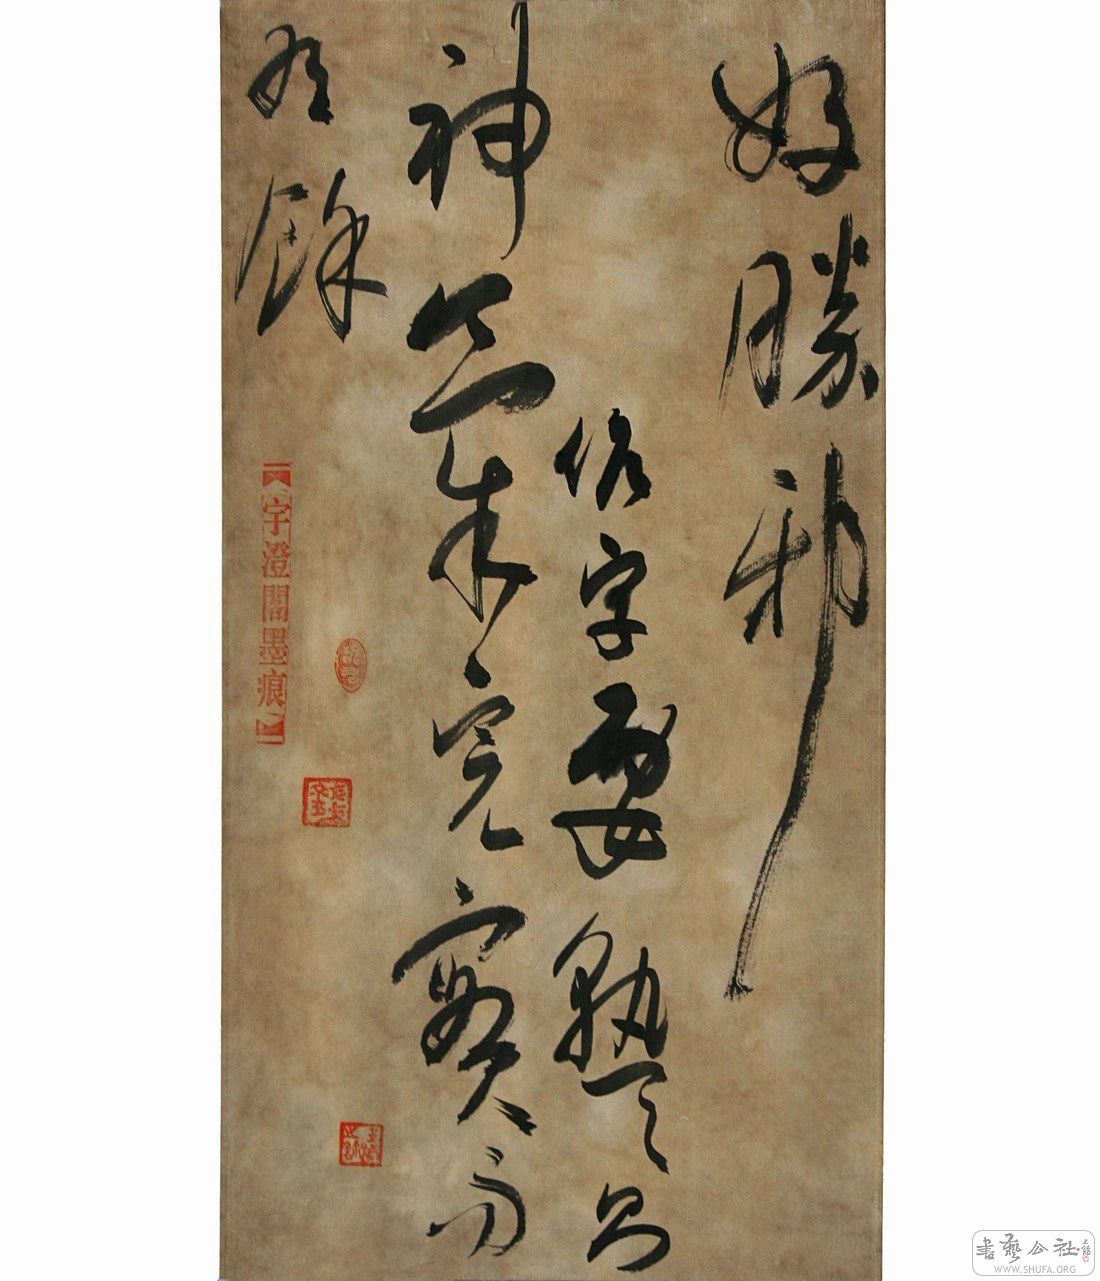 好勝邪
作字要熟則
神氣完實而
有餘
【字澄閣墨痕】
書藝公社
WWW.SHUFA.ORG